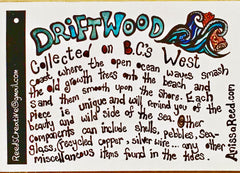 DRiFTWOOD
Collected on B.C.'s West
Coast, where the open ocean waves smash
the old growth trees onto the beach and
sand them smooth upon the shore. Each
piece is unique and will remind you of the
beauty and wild side of the sea. Other
components can include shells, pebbles, sea-
glass, (recycled copper + silver wire... any other
miscellaneous items found in the tides.
AnissaReed.com
ReedsCreative@gmail.com